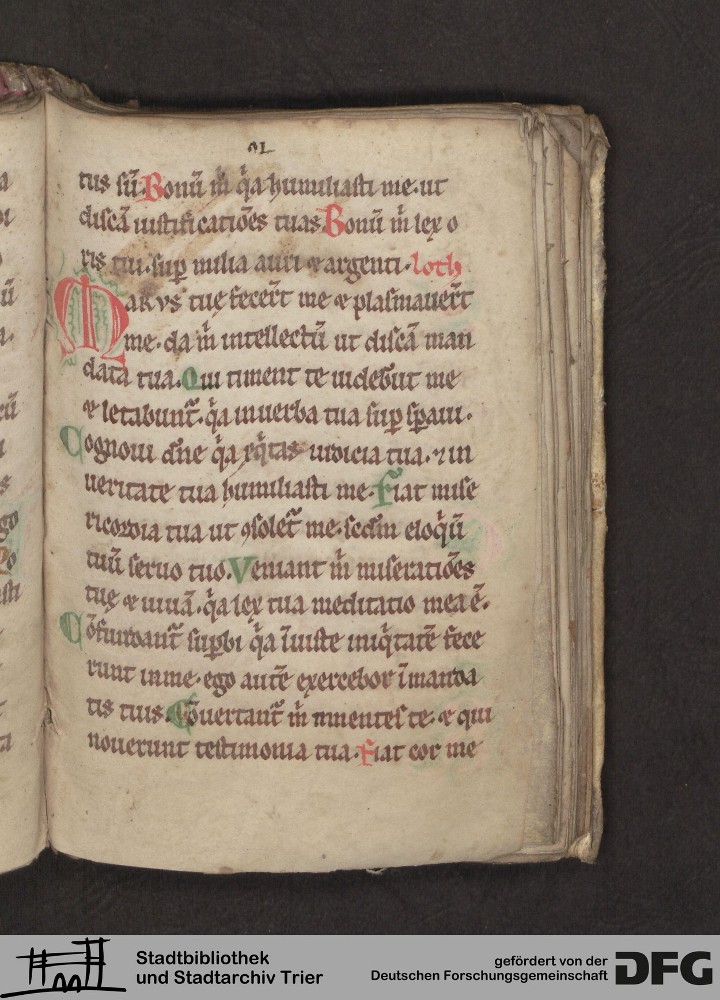 tus sū. Bonū m̄ q̄a humiliasti me. ut
discā iustificatiōes tuas. Bonū m̄ lex o
ris tui. suꝑ milia auri & argenti. loth
Manvs tuę fecer̄t me & plasmauer̄t
me. da m̄ intellectū ut discā man
data tua. Qui timent te uideb̄ut me
& letabunt̄. q̄a in uerba tua suꝑ sꝑaui.
Cognoui dn̄e q̄a eq̄tas iudicia tua. ⁊ in
ueritate tua humiliasti me. Fiat mise
ricordia tua ut ꝯsolet̄ me. scdm̄ eloq̄ū
tuū seruo tuo. Veniant m̄ miseratiōes
tuę & uiuā. q̄a lex tua meditatio mea ē.
Cōfundant̄ suꝑbi q̄a īiuste iniq̄tatē fece
runt in me. ego autē exercebor ī manda
tis tuis. Cōuertant̄ m̄ timentes te. & qui
nouerunt testimonia tua. Fiat cor me
Stadtbibliothek
und Stadtarchiv Trier
gefördert von der
Deutschen Forschungsgemeinschaft
DFG